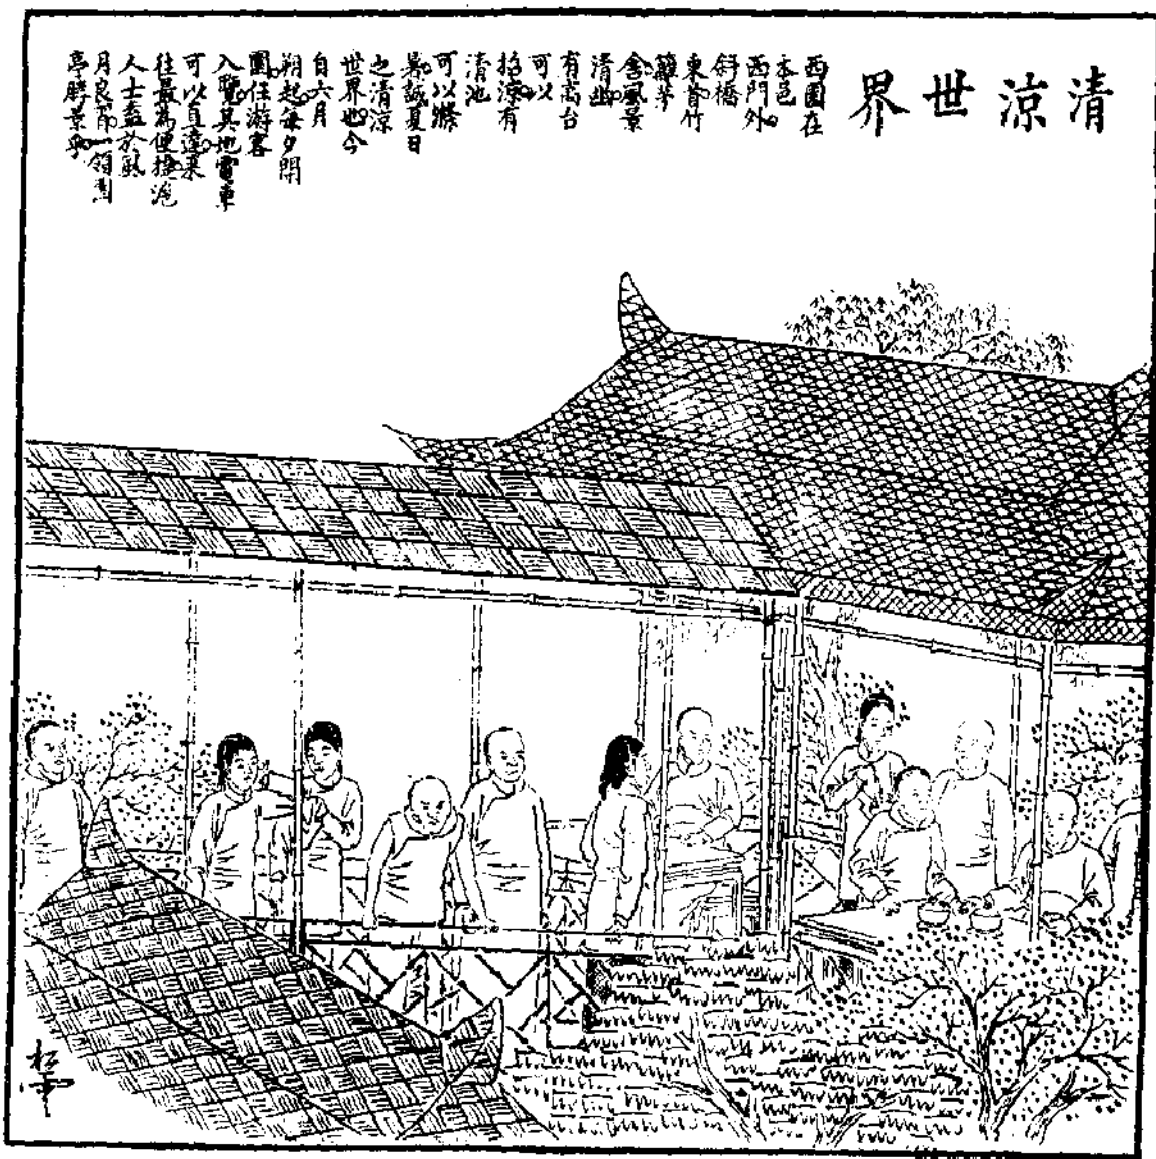 清涼世界
西園在
本邑
西門外
斜橋
東首竹
籬茅
舍風景
清幽
有高台
可以
招涼有
清池
可以滌
暑誠夏日
之清涼
世界也今
自六月
朔起每夕開
園任游客
入覽其地電車
可以直達來
往最為便捷滬
人士盍於風
月良節一領園
亭勝景乎
松雲